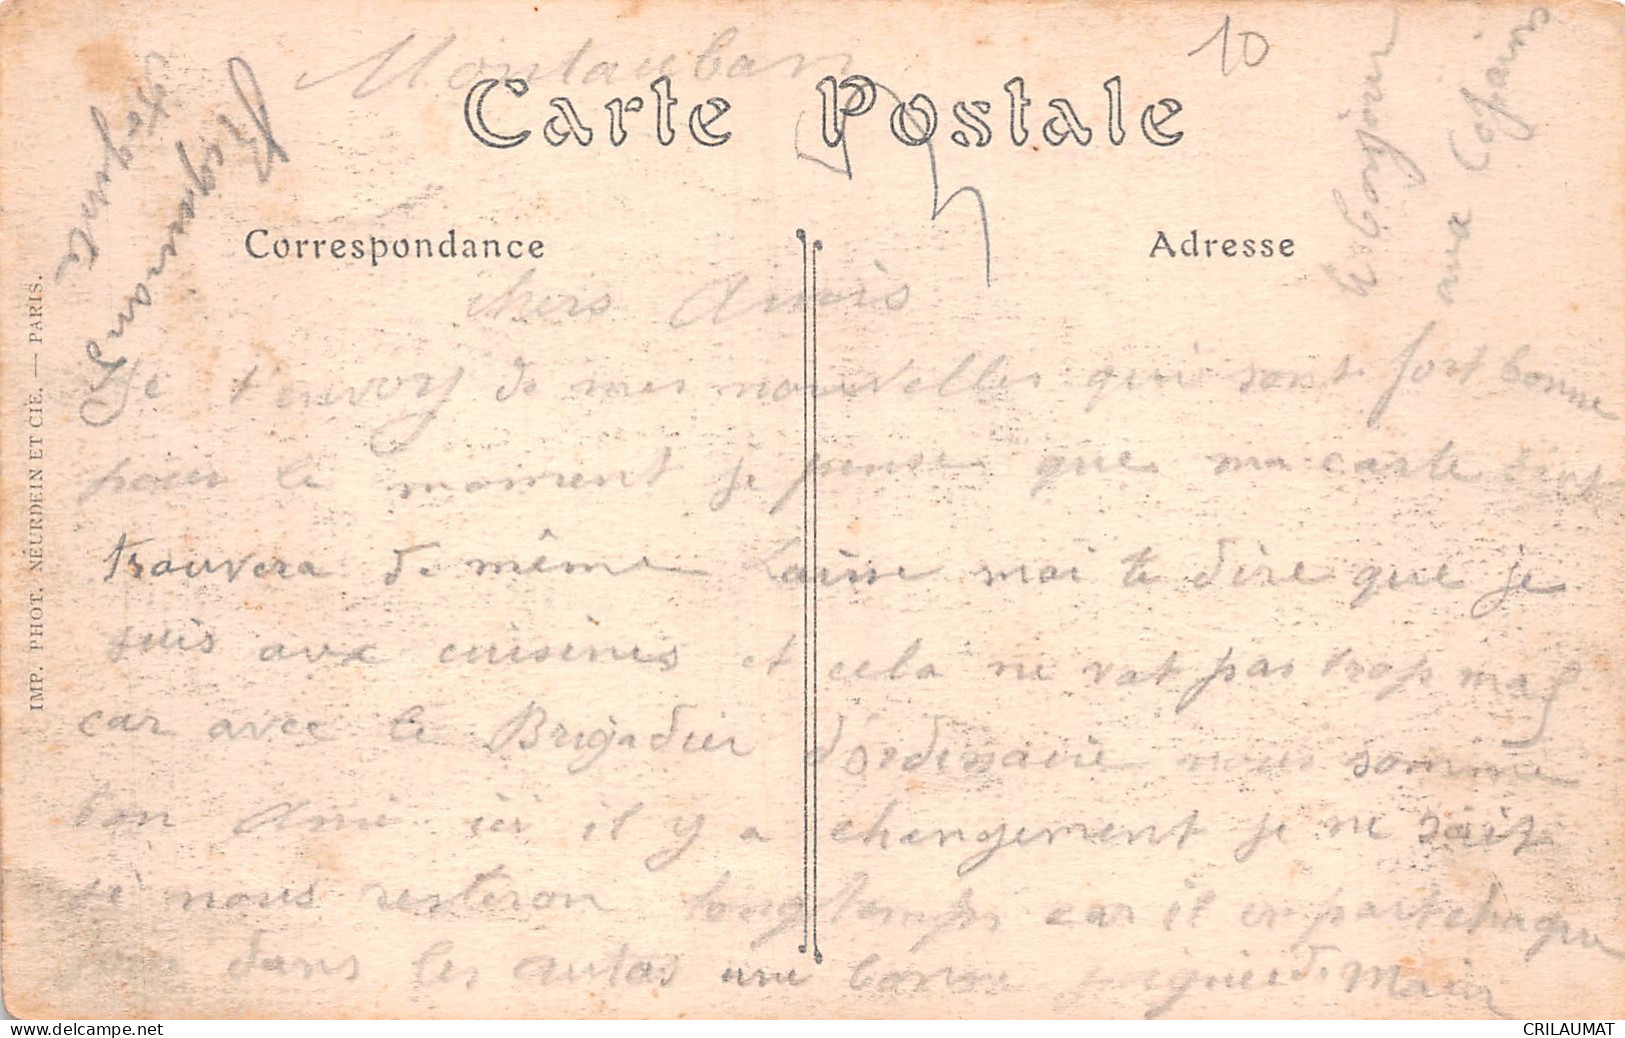 Montauban
10
Carte Postale
Correspondance
Adresse
chers Amis
Je t'envoy de mes nouvelles qui sont fort bonne
pour le moment je pense que ma carte
trouvera de même Laisse moi te dire que je
suis aux cuisines et cela ne vat pas trop mal
car avec le Brigadier d'ordinaire nous somme
bon Ami ici il y a changement je ne sait
si nous resteron longtemps car il en part chaque
jour dans les autos une bonne poignée de Main
Bonjour
aux Copains
IMP. PHOT. NEURDEIN ET CIE. — PARIS.
CRILAUMAT